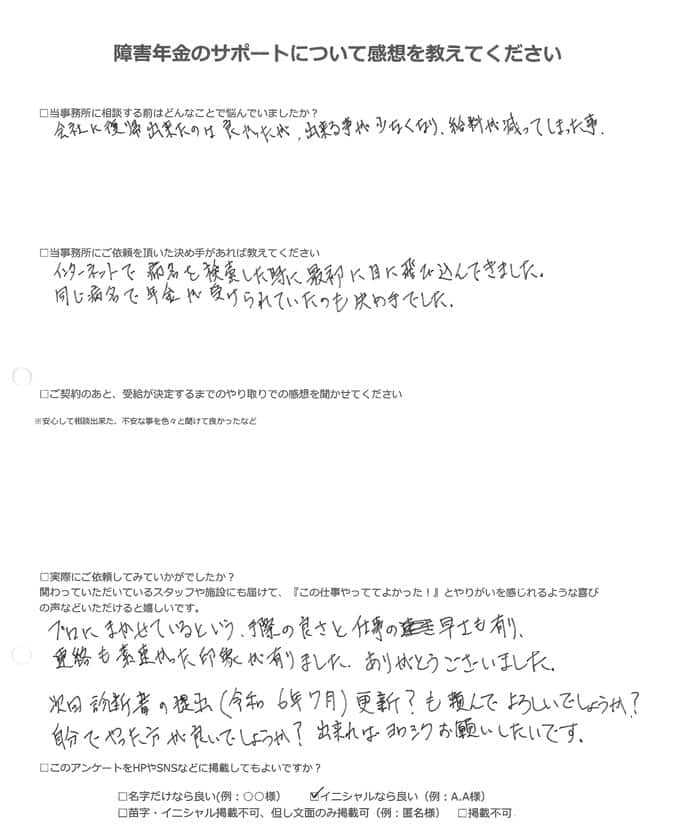 障害年金のサポートについて感想を教えてください
□当事務所に相談する前はどんなことで悩んでいましたか？
会社に復帰出来たのは良かったが、出来る事が少なくなり、給料が減ってしまった事.
□当事務所にご依頼を頂いた決め手があれば教えてください
インターネットで病名を検索した時に最初に目に飛び込んできました.
同じ病名で年金が受けられていたのも決め手でした.
□ご契約のあと、受給が決定するまでのやり取りでの感想を聞かせてください
※安心して相談出来た、不安な事を色々と聞けて良かったなど
□実際にご依頼してみていかがでしたか？
関わっていただいているスタッフや施設にも届けて、『この仕事やっててよかった！』とやりがいを感じれるような喜び
の声などいただけると嬉しいです。
プロにまかせているという、手際の良さと仕事の早さも有り、
連絡も素早かった印象が有りました. ありがとうございました.
次回診断書の提出(令和 6年7月)更新？も頼んでよろしいでしょうか？
自分でやった方が良いでしょうか？出来ればヨロシクお願いしたいです.
□このアンケートをHPやSNSなどに掲載してもよいですか？
□名字だけなら良い(例：○○様） ☑イニシャルなら良い（例：A.A様）
□苗字・イニシャル掲載不可、但し文面のみ掲載可（例：匿名様） □掲載不可